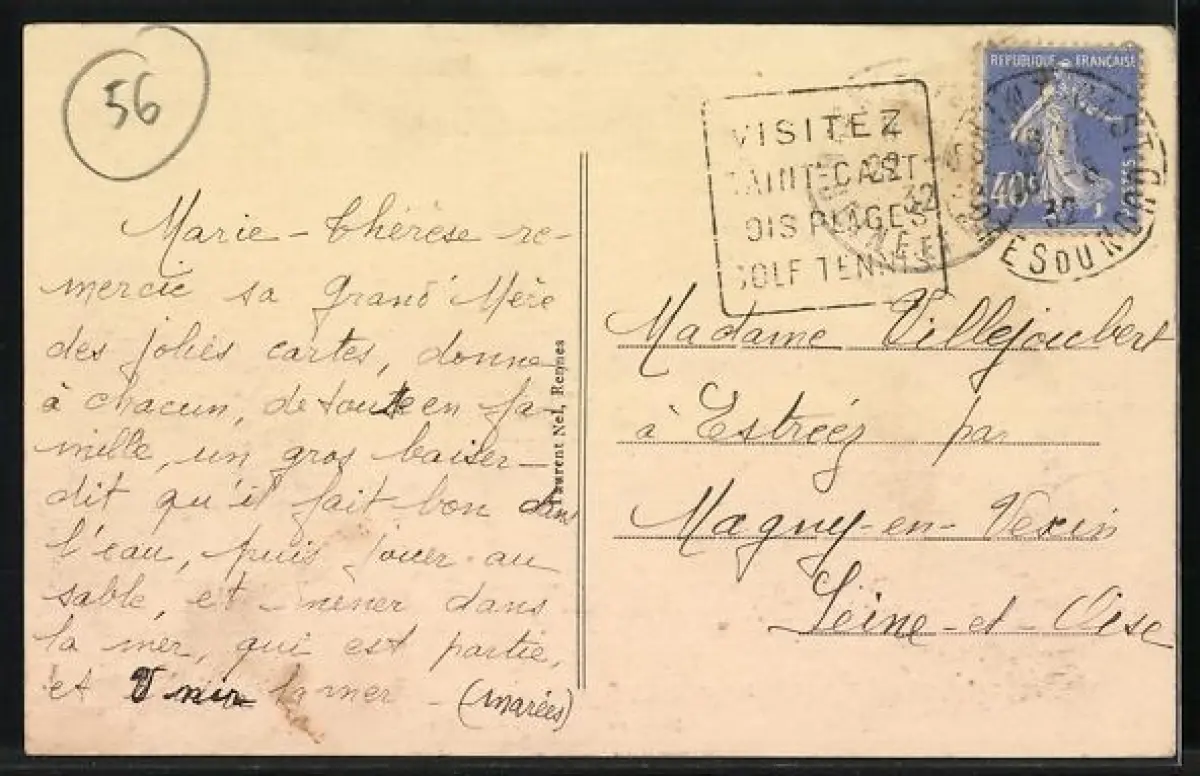 56
VISITEZ
SAINT-CAST
OIS PLAGES
GOLF TENNIS
REPUBLIQUE FRANÇAISE
40
32
ESDUNORD
Marie-Thérèse re-
mercie sa Grand'Mère
des jolies cartes, donne
à chacun, de toute en fa-
mille, un gros baiser -
dit qu'il fait bon dans
l'eau, puis jouer au
sable, et mener dans
la mer, qui est partie,
et la mer - (marées)
Laurent Nel, Rennes
Madame Villejoubert
à Estréez par
Magny-en-Vexin
Seine-et-Oise